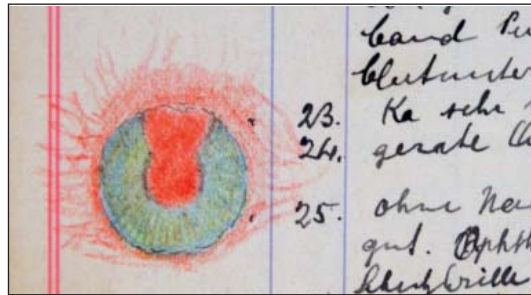 band Pu
blutunter
23. Ka sehr
24. gerate
25. ohne Ne
gut. Ophth
Schutzbrille